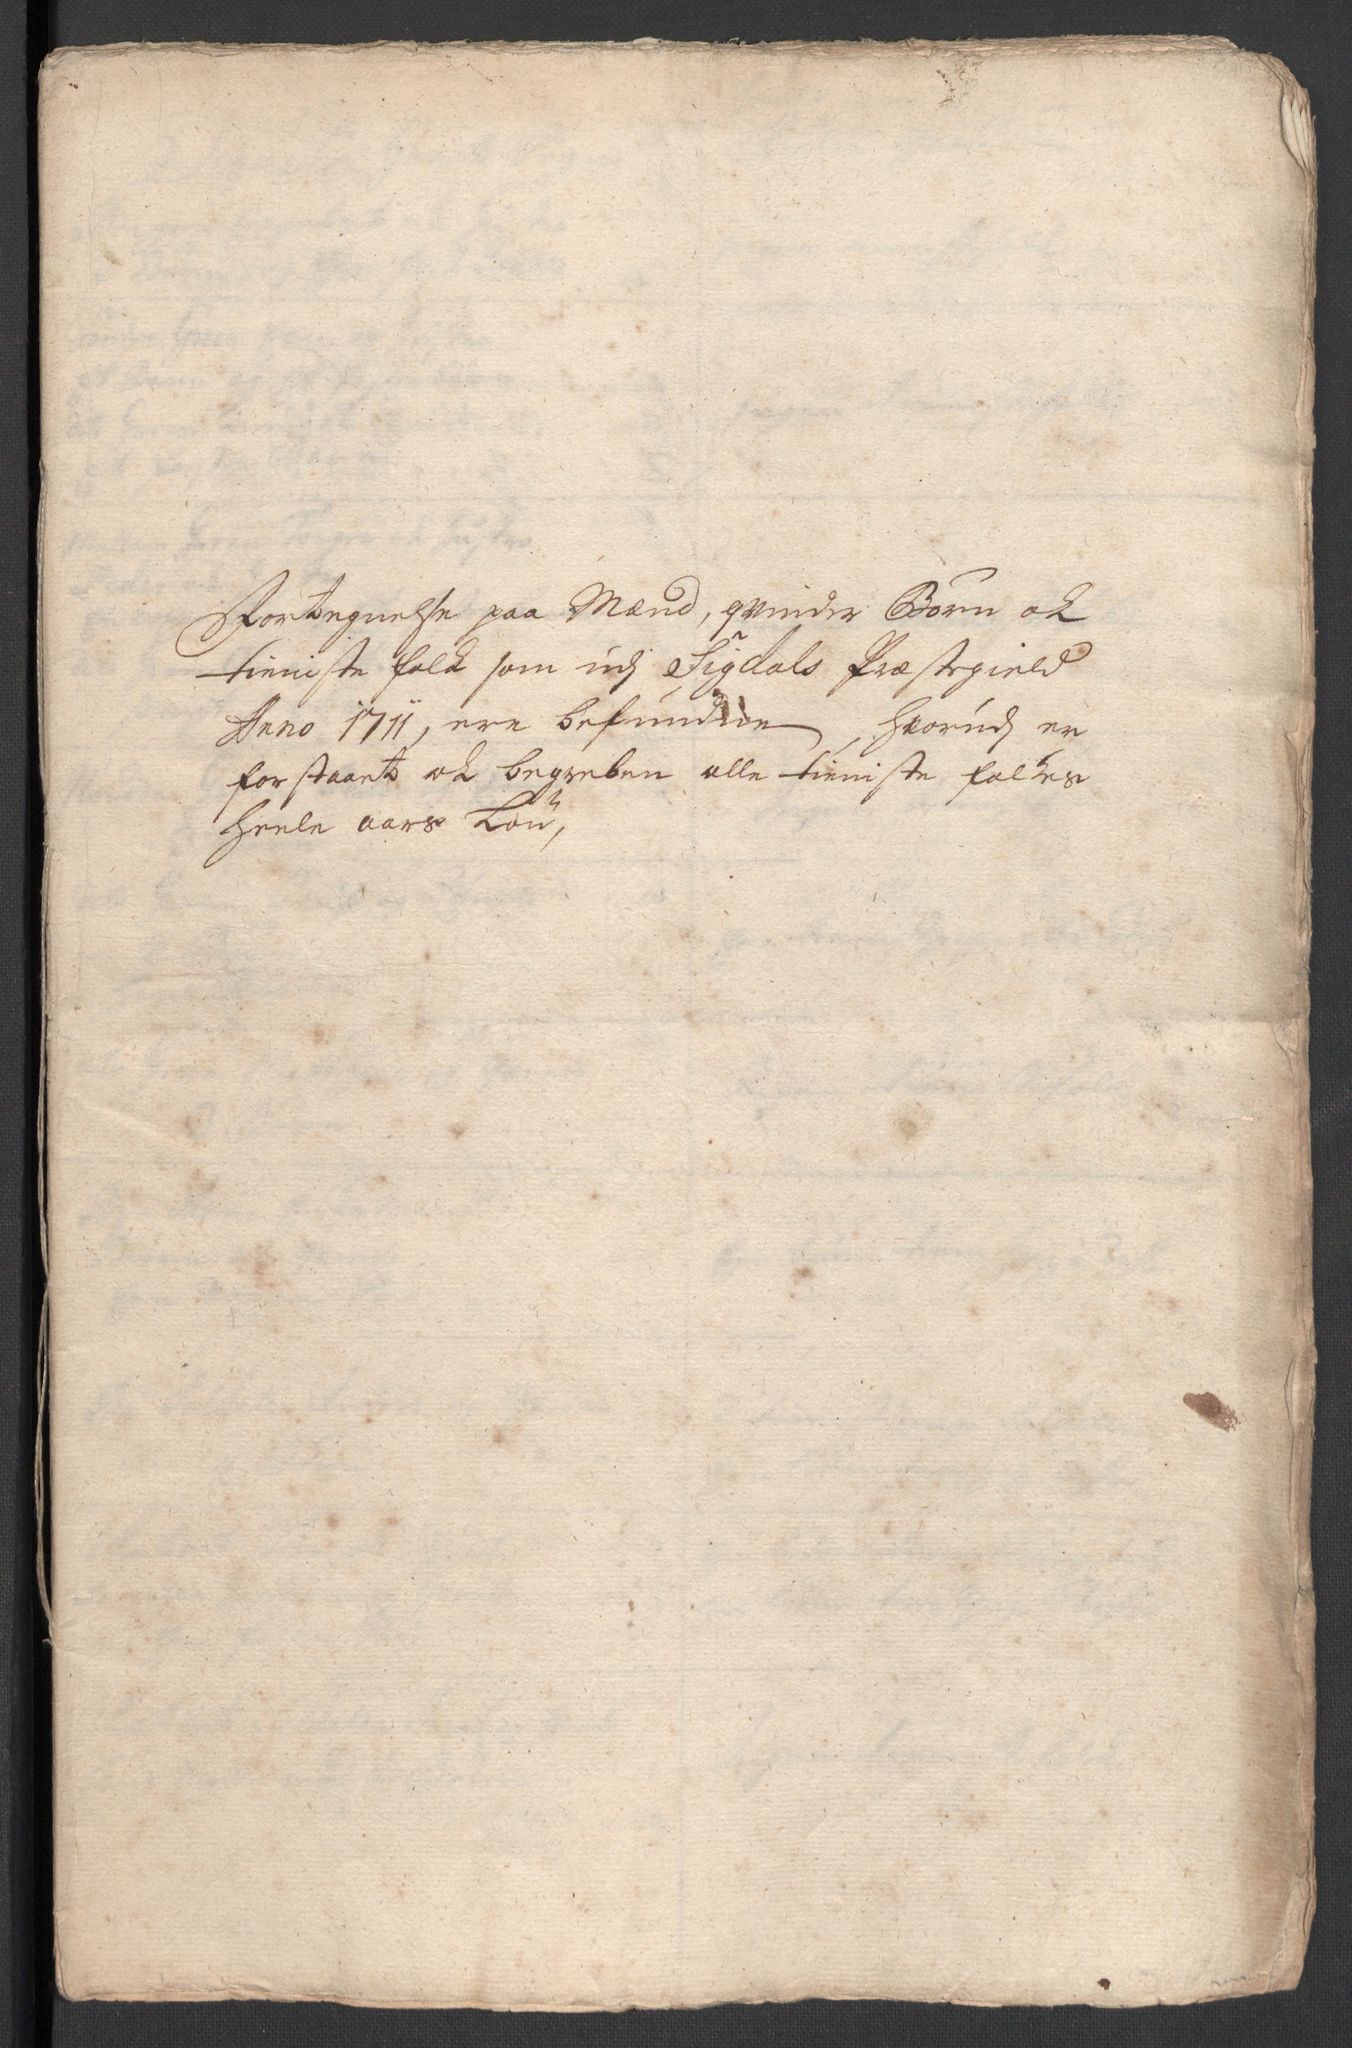 Fortegnelse paa Mænd, qvinder Børn ok
tieniste folk som udj Sigdals Præstegield
Anno 1711, ere befundne, hvorudj er
forstaaet ok begreben alle tieniste folkes
heele aars Løn,